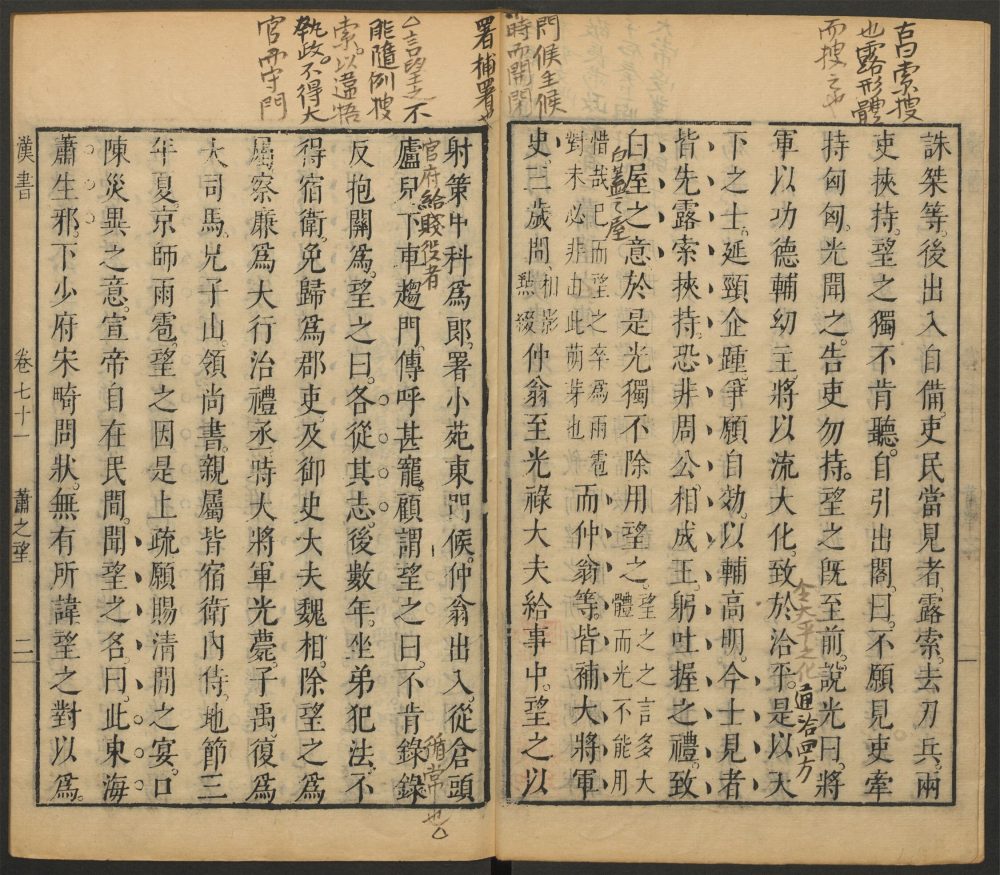 古曰索搜
也露形體
而搜之也
誅桀等後出入自備吏民當見者露索去刀兵兩
吏挾持望之獨不肯聽自引出閤曰不願見吏牽
持匈匈光聞之告吏勿持望之既至前說光曰將
軍以功德輔幼主將以流大化致於洽平是以天
通洽四方
下之士延頸企踵爭願自効以輔高明今士見者
皆先露索挾持恐非周公相成王躬吐握之禮致
白屋之意於是光獨不除用望之望之之言多大
體而光不能用
白蓋之屋
惜哉已而望之卒為雨雹
對未必非由此萌芽也
而仲翁等皆補大將軍
史三歲間
相影
點綴
仲翁至光祿大夫給事中望之以
門候主候
時而開閉
署補署也
射策中科爲郎署小苑東門候仲翁出入從倉頭
官府給賤役者
廬兒下車趨門傳呼甚寵顧謂望之曰不肯錄錄
循常也
反抱關爲望之曰各從其志後數年坐弟犯法不
得宿衛免歸爲郡吏及御史大夫魏相除望之爲
屬察廉爲大行治禮丞時大將軍光薨子禹復爲
大司馬兄子山領尚書親屬皆宿衛內侍地節三
年夏京師雨雹望之因是上疏願賜清閒之宴口
陳災異之意宣帝自在民間聞望之名曰此東海
蕭生邪下少府宋畸問狀無有所諱望之對以爲
言望之不
能隨例搜
索以違牾
執政不得大
官而守門
漢書
卷七十一
蕭之望
二